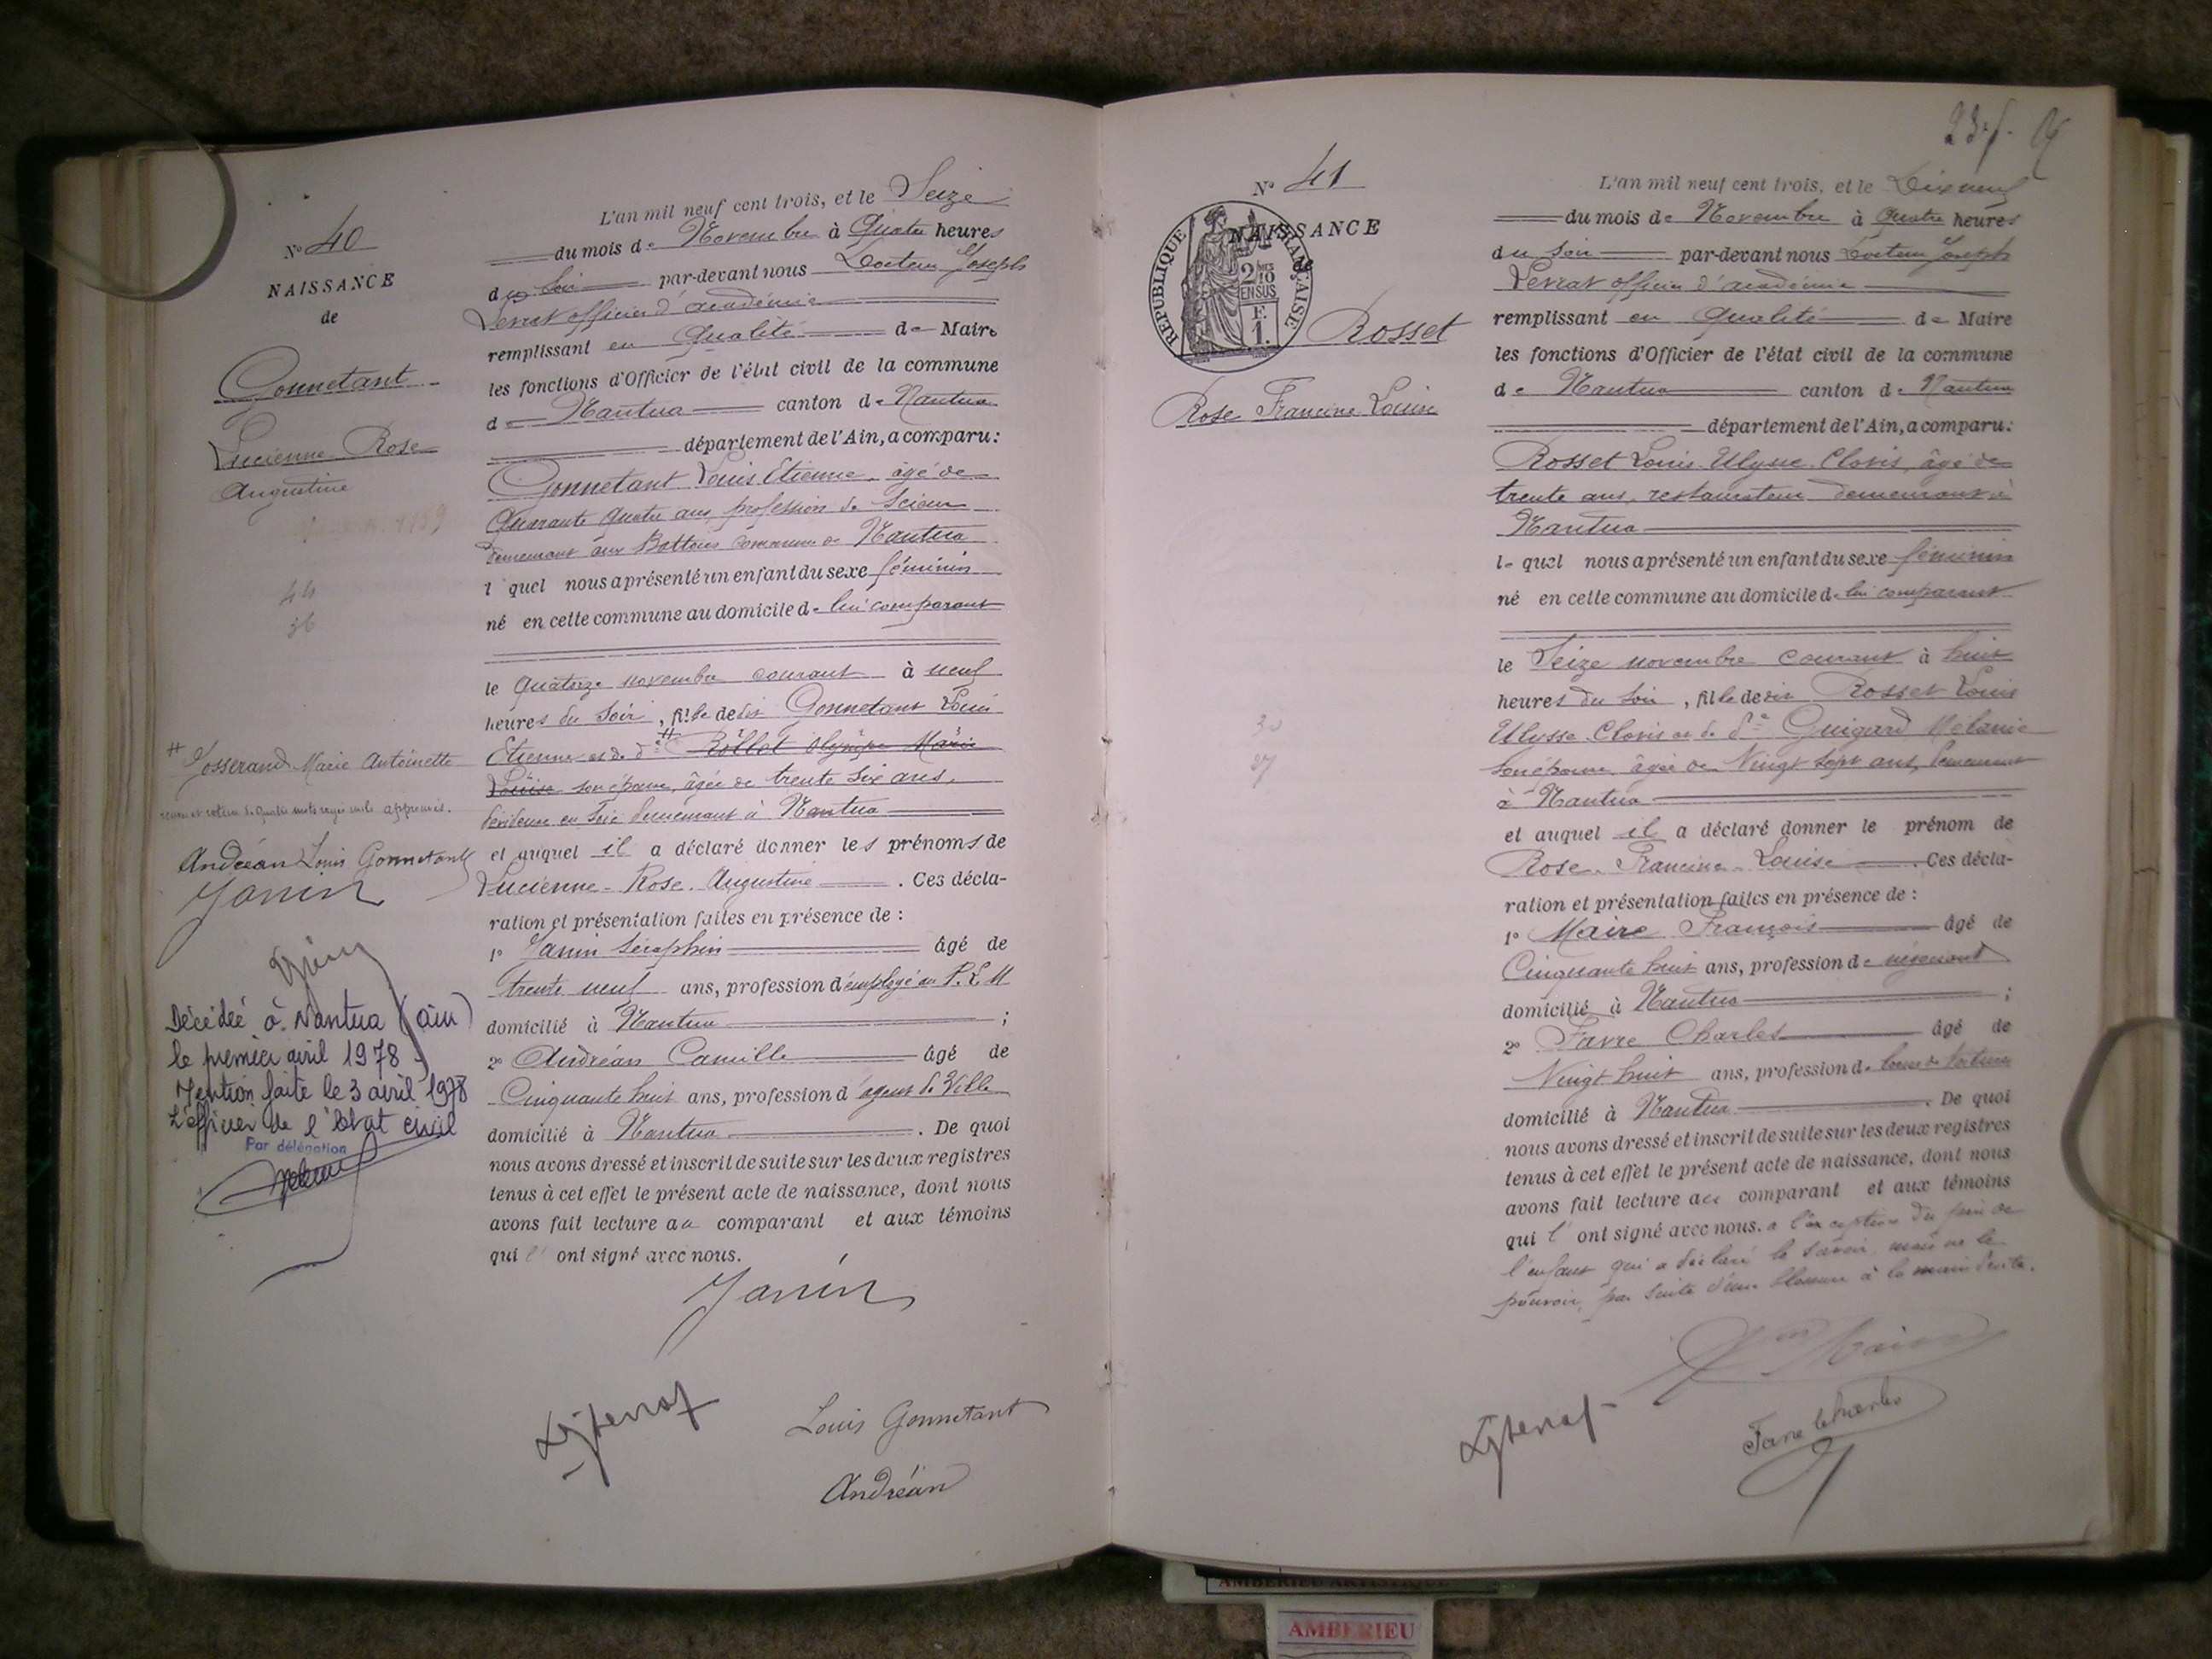 Nº 40
NAISSANCE
de
Gonnetant
Lucienne Rose
Augustine
44
36
# Josserand Marie Antoinette
renvoi et rature de quatre mots rayés nuls approuvés.
Andréan Louis Gonnetant
Janin
Décédée à Nantua (ain)
le premier avril 1978
Mention faite le 3 avril 1978
L'officier de l'Etat civil
Par délégation
L'an mil neuf cent trois, et le Seize
du mois de Novembre à Quatre heures
du Soir par-devant nous Docteur Joseph
Levrat officier d'académie
remplissant en qualité de Maire
les fonctions d'Officier de l'état civil de la commune
de Nantua canton de Nantua
département de l'Ain, a comparu :
Gonnetant Louis Etienne âgé de
Quarante quatre ans, profession de Scieur
demeurant aux Battoirs commune de Nantua
lequel nous a présenté un enfant du sexe féminin
né en cette commune au domicile de lui comparant
le quatorze novembre courant à neuf
heures du Soir, fille de dit Gonnetant Louis
Etienne et de de # Rollet Olympe Marie
Louise son épouse, âgée de trente six ans,
dévideuse en Soie demeurant à Nantua
et auquel il a déclaré donner les prénoms de
Lucienne-Rose-Augustine. Ces décla-
ration et présentation faites en présence de :
1º Janin Séraphin âgé de
trente neuf ans, profession d'employé au P.L.M
domicilié à Nantua ;
2º Andréan Camille âgé de
Cinquante huit ans, profession d'agent de Ville
domicilié à Nantua. De quoi
nous avons dressé et inscrit de suite sur les deux registres
tenus à cet effet le présent acte de naissance, dont nous
avons fait lecture au comparant et aux témoins
qui l' ont signé avec nous.
Janin
Louis Gonnetant
Andréan
Nº 41
NAISSANCE
de
RÉPUBLIQUE FRANÇAISE
2/10 EN SUS
F.
1.
Rosset
Rose Francine Louise
30
27
L'an mil neuf cent trois, et le Dix neuf
du mois de Novembre à Quatre heures
du Soir par-devant nous Docteur Joseph
Levrat officier d'académie
remplissant en qualité de Maire
les fonctions d'Officier de l'état civil de la commune
de Nantua canton de Nantua
département de l'Ain, a comparu :
Rosset Louis Ulysse Clovis, âgé de
trente ans, restaurateur demeurant à
Nantua
lequel nous a présenté un enfant du sexe féminin
né en cette commune au domicile de lui comparant
le Seize novembre courant à huit
heures du Soir, fille de dit Rosset Louis
Ulysse Clovis et de de Guigard Mélanie
son épouse, âgée de Vingt sept ans, demeurant
à Nantua
et auquel il a déclaré donner le prénom de
Rose-Francine-Louise. Ces décla-
ration et présentation faites en présence de :
1º Maire François âgé de
Cinquante huit ans, profession de négociant
domicilié à Nantua ;
2º Favre Charles âgé de
Vingt huit ans, profession de loueur de Voitures
domicilié à Nantua. De quoi
nous avons dressé et inscrit de suite sur les deux registres
tenus à cet effet le présent acte de naissance, dont nous
avons fait lecture au comparant et aux témoins
qui l' ont signé avec nous. à l'exception du père de
l'enfant qui a déclaré le savoir, mais ne le
pouvoir, par suite d'une blessure à la main droite.
Maire
Favre Charles
AMBERIEU ARTISTIQUE
AMBERIEU